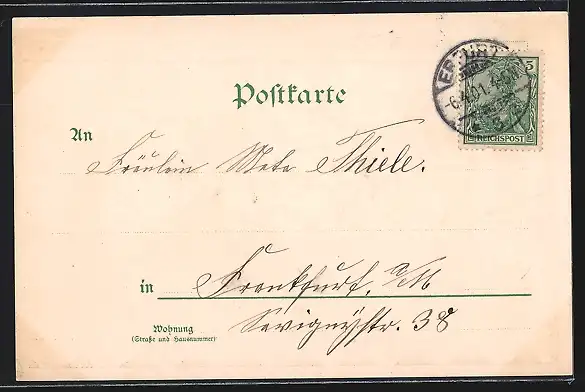 Postkarte
ERFURT
6.4.01.
5
REICHSPOST
An
Fräulein Meta Thiele.
in Frankfurt, a/M
Wohnung
(Straße und Hausnummer)
Savignystr. 38